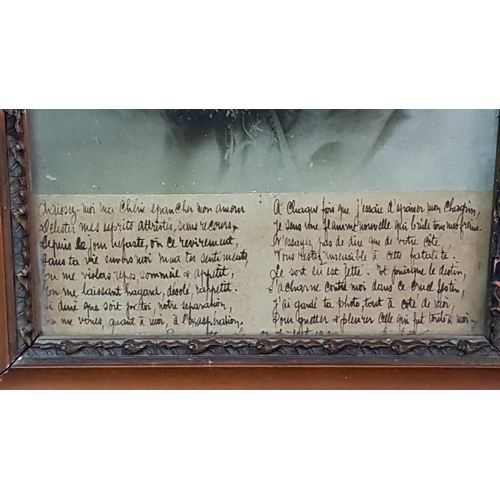 Laissez-moi ma Chérie épancher mon amour
Délester mes esprits attristés, sans recours,
Depuis le jour néfaste, où ce revirement,
Dans ta vie envers moi mua tes sentiments,
Tu me violais repos, sommeil & appétit,
Tu me laissant hagard, désolé,
Si dure que soit pour toi, notre séparation,
Tu me verses, quant à moi, à l'exaspération,
A Chaque fois que j'essaie d'exprimer mon Chagrin,
Je sens une flamme nouvelle qui brûle tous mes freins.
N'essayes pas de dire que de votre côté,
Vous restez insensible à cette fatalité
Le sort en est jeté. Et puisque le destin,
S'acharne contre moi dans ce cruel festin
J'ai gardé ta photo, tout à côté de moi
Pour guetter & pleurer celle qui fut toute à moi